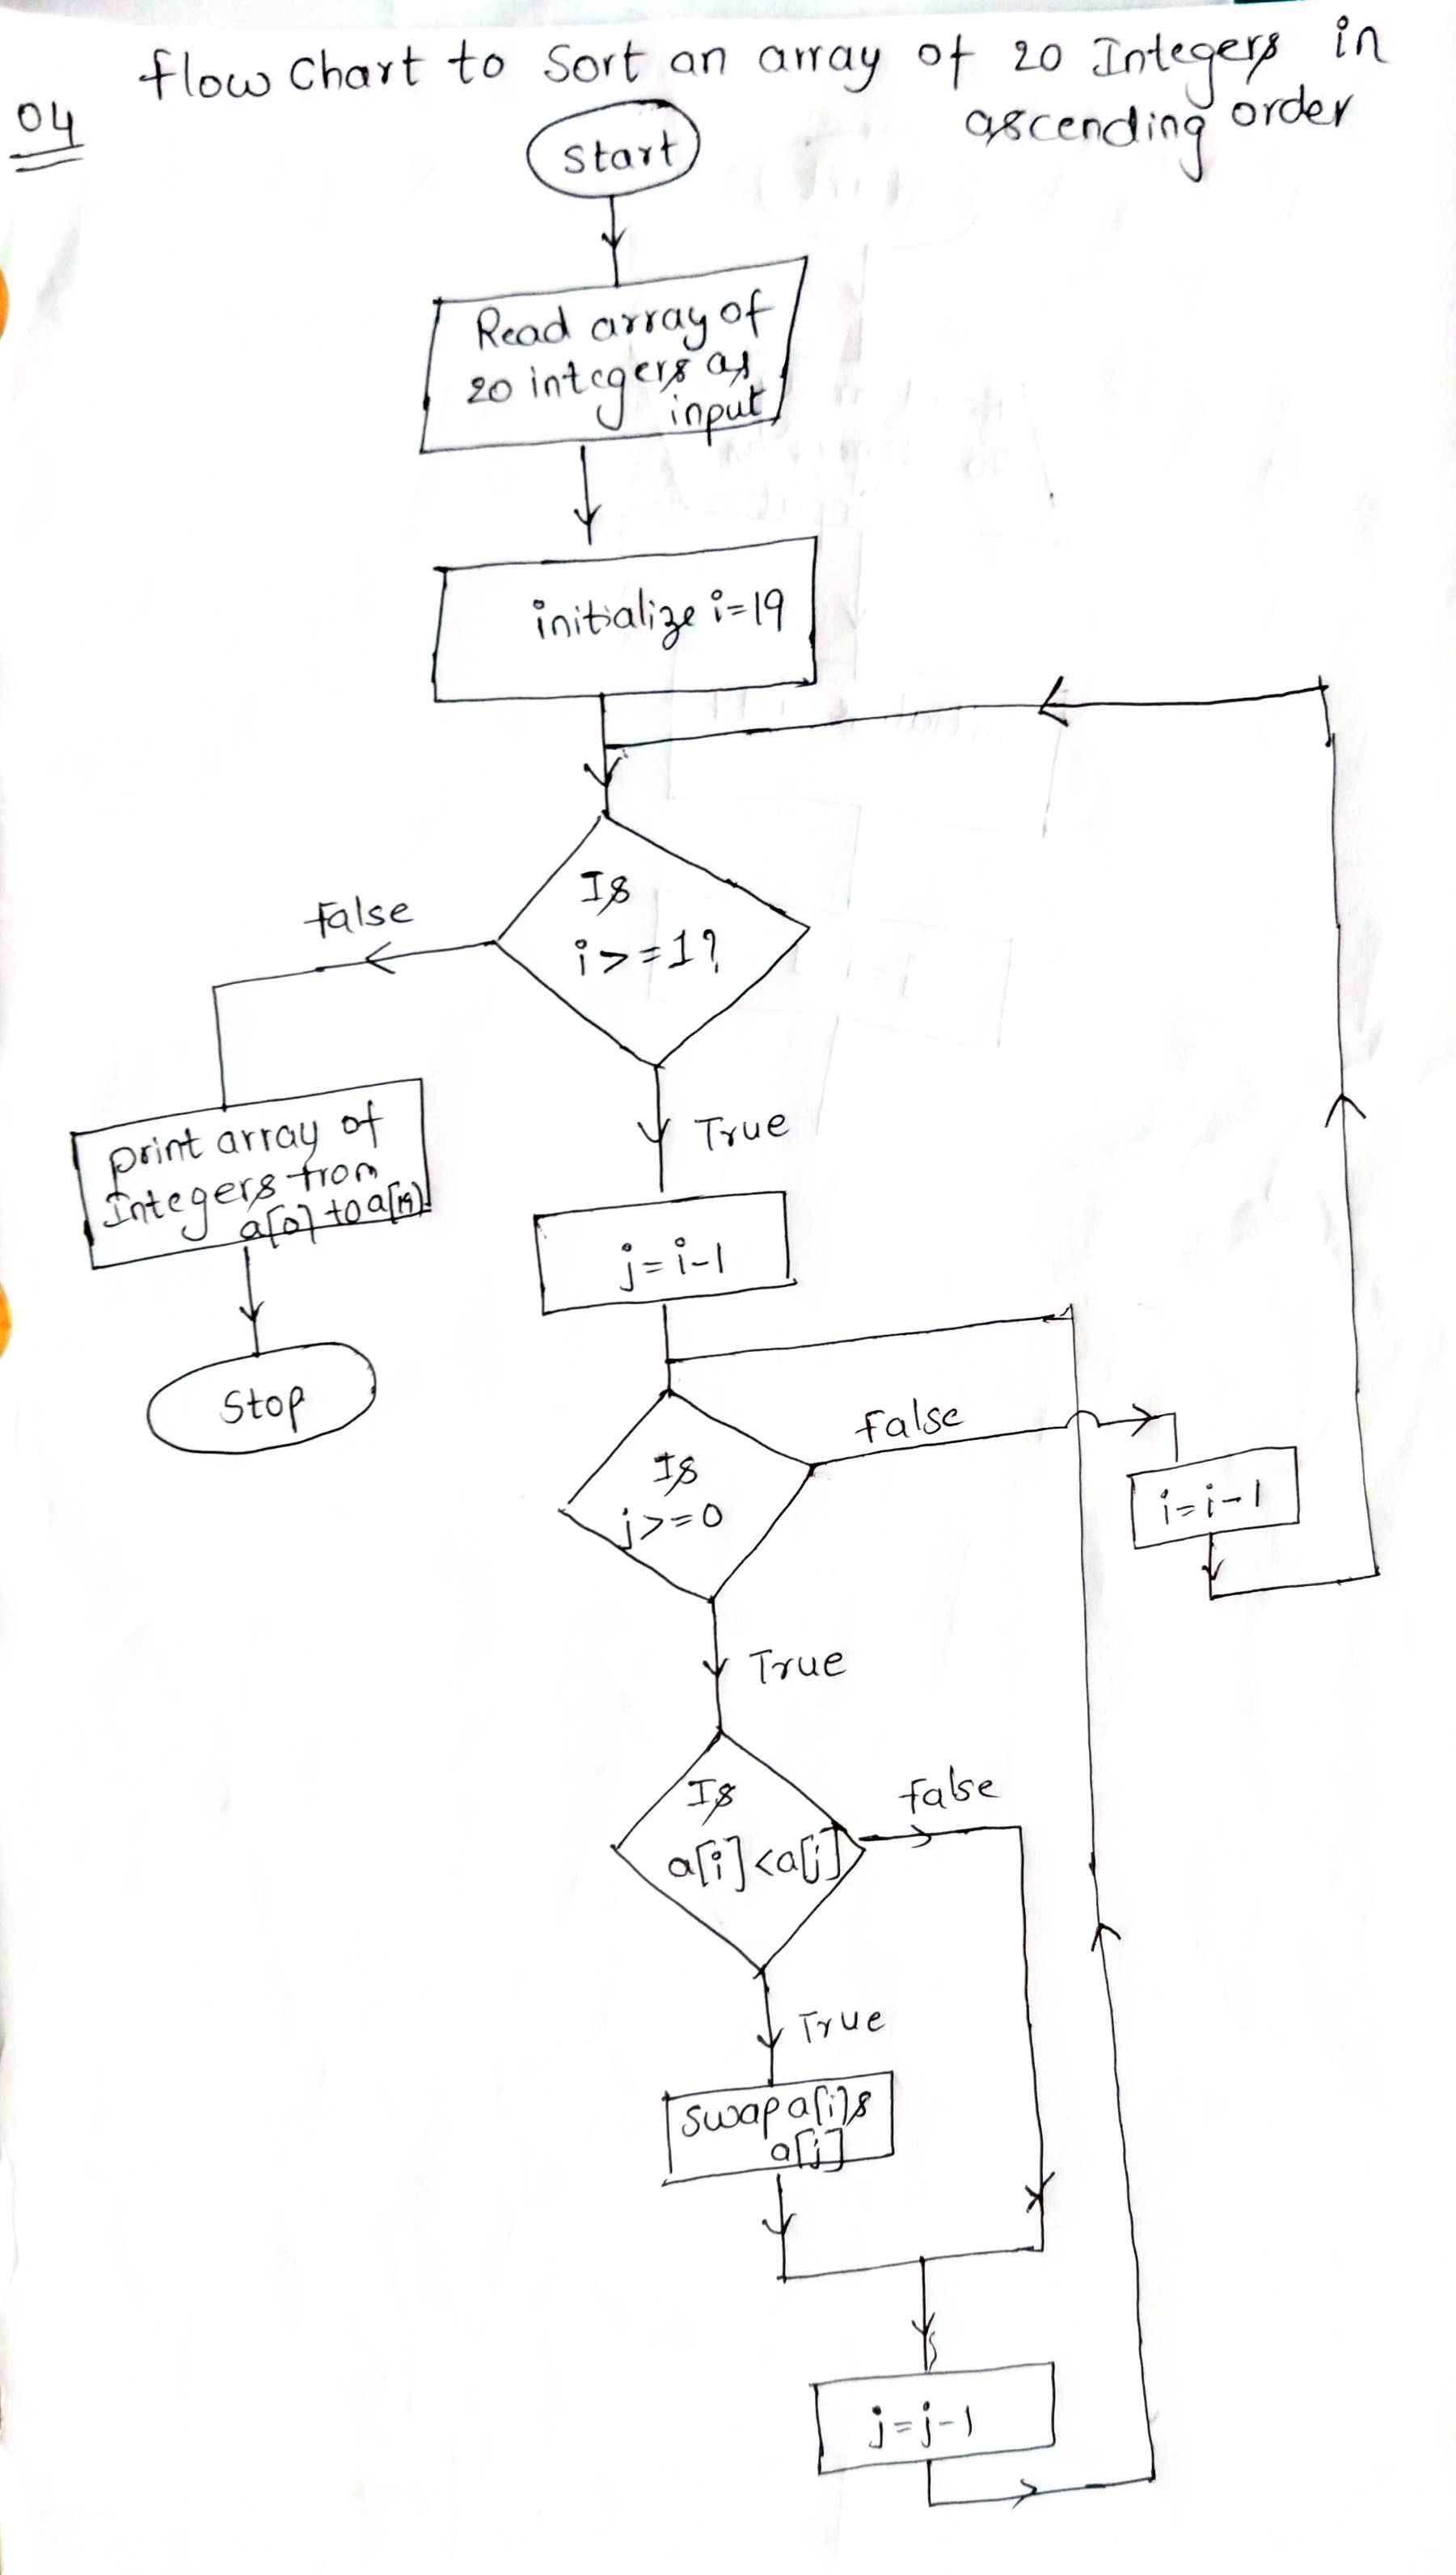 flow Chart to Sort an array of 20 Integers in
ascending order
04
Start
Read array of
20 integers as
input
initialize i=19
Is
i>=1?
false
True
print array of
Integers from
a[0] to a[19]
Stop
j=i-1
Is
j>=0
false
i=i-1
True
Is
a[i]<a[j]
false
True
swap a[i] &
a[j]
j=j-1